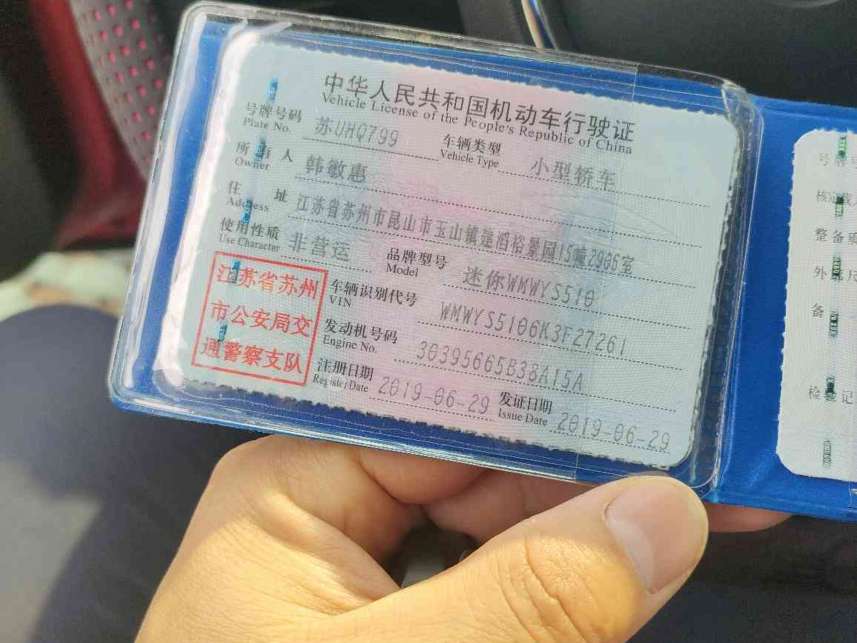 中华人民共和国机动车行驶证
Vehicle License of the People's Republic of China
号牌号码 苏UHQ799 车辆类型 小型轿车
Plate No. Vehicle Type
所有人 韩敏惠
Owner
住址 江苏省苏州市昆山市玉山镇莲滔裕景园15幢2906室
Address
使用性质 非营运 品牌型号 迷你WMWYS510
Use Character Model
江苏省苏州
市公安局交
通警察支队
车辆识别代号 WMWYS5106K3F27261
VIN
发动机号码 30395665B38A15A
Engine No.
注册日期 2019-06-29 发证日期 2019-06-29
Register Date Issue Date
号牌
核定载
整备质
外
备
检 记